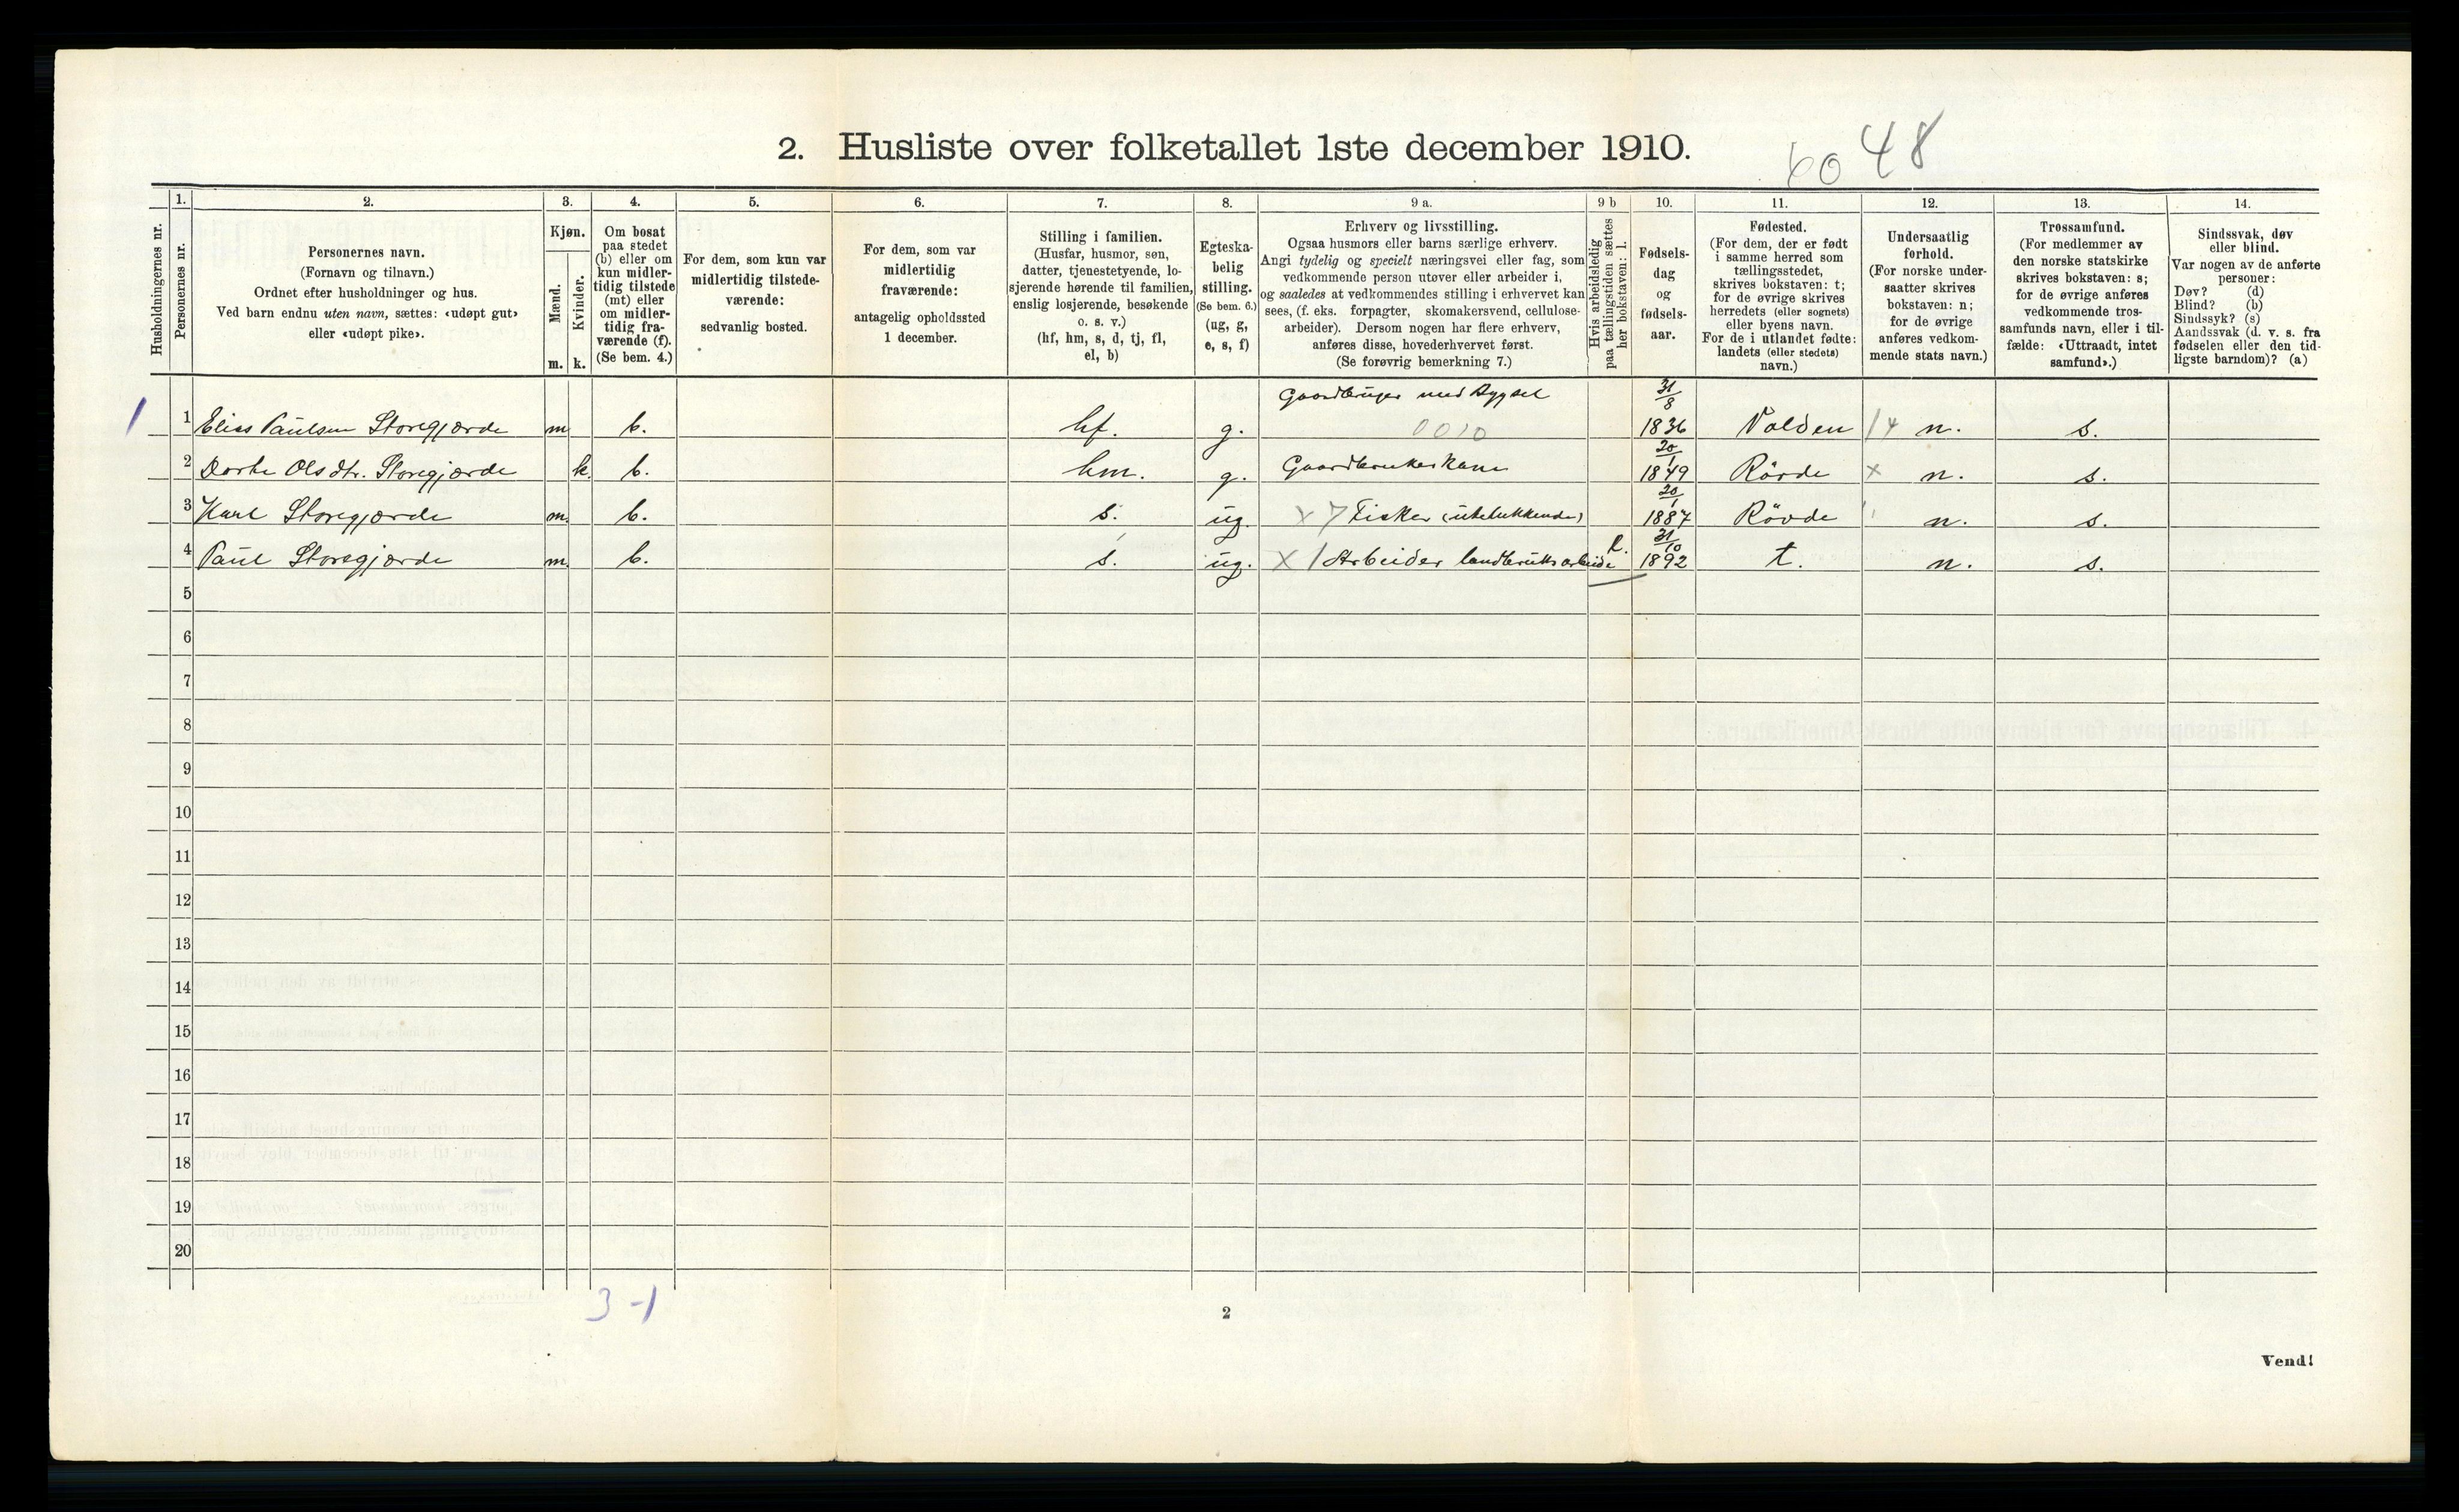 2. Husliste over folketallet 1ste december 1910.
60 48
Husholdningernes nr.
1. Personernes nr.
2. Personernes navn.
(Fornavn og tilnavn.)
Ordnet efter husholdninger og hus.
Ved barn endnu uten navn, sættes: «udøpt gut»
eller «udøpt pike».
3. Kjøn.
Mænd. m.
Kvinder. k.
4. Om bosat
paa stedet
(b) eller om
kun midler-
tidig tilstede
(mt) eller
om midler-
tidig fra-
værende (f).
(Se bem. 4.)
5. For dem, som kun var
midlertidig tilstede-
værende:
sedvanlig bosted.
6. For dem, som var
midlertidig
fraværende:
antagelig opholdssted
1 december.
7. Stilling i familien.
(Husfar, husmor, søn,
datter, tjenestetyende, lo-
sjerende hørende til familien,
enslig losjerende, besøkende
o. s. v.)
(hf, hm, s, d, tj, fl,
el, b)
8. Egteska-
belig
stilling.
(Se bem. 6.)
(ug, g,
e, s, f)
9 a. Erhverv og livsstilling.
Ogsaa husmors eller barns særlige erhverv.
Angi tydelig og specielt næringsvei eller fag, som
vedkommende person utøver eller arbeider i,
og saaledes at vedkommendes stilling i erhvervet kan
sees, (f. eks. forpagter, skomakersvend, cellulose-
arbeider). Dersom nogen har flere erhverv,
anføres disse, hovederhvervet først.
(Se forøvrig bemerkning 7.)
9 b Hvis arbeidsledig
paa tællingstiden sættes
her bokstaven: l.
10. Fødsels-
dag
og
fødsels-
aar.
11. Fødested.
(For dem, der er født
i samme herred som
tællingsstedet,
skrives bokstaven: t;
for de øvrige skrives
herredets (eller sognets)
eller byens navn.
For de i utlandet fødte:
landets (eller stedets)
navn.)
12. Undersaatlig
forhold.
(For norske under-
saatter skrives
bokstaven: n;
for de øvrige
anføres vedkom-
mende stats navn.)
13. Trossamfund.
(For medlemmer av
den norske statskirke
skrives bokstaven: s;
for de øvrige anføres
vedkommende tros-
samfunds navn, eller i til-
fælde: «Uttraadt, intet
samfund».)
14. Sindssvak, døv
eller blind.
Var nogen av de anførte
personer:
Døv? (d)
Blind? (b)
Sindssyk? (s)
Aandssvak (d. v. s. fra
fødselen eller den tid-
ligste barndom)? (a)
1 1 Elias Paulsen Storegjærde m b. hf. g. Gaardbruger med Bygsel 0010 31/8 1836 Volden 14 n. s.
2 Dorte Olsdtr. Storegjærde k. b. hm. g. Gaardbrukerkone 20/1 1849 Rövde x n. s.
3 Karl Storegjærde m. b. s. ug. x 7 Fisker (utelukkende) 20/1 1887 Rövde " n. s.
4 Paul Storegjærde m. b. s. ug. x 1 Arbeider landbruksarbeide l. 31/10 1892 t. n. s.
5
6
7
8
9
10
11
12
13
14
15
16
17
18
19
20
3-1
2
Vend!